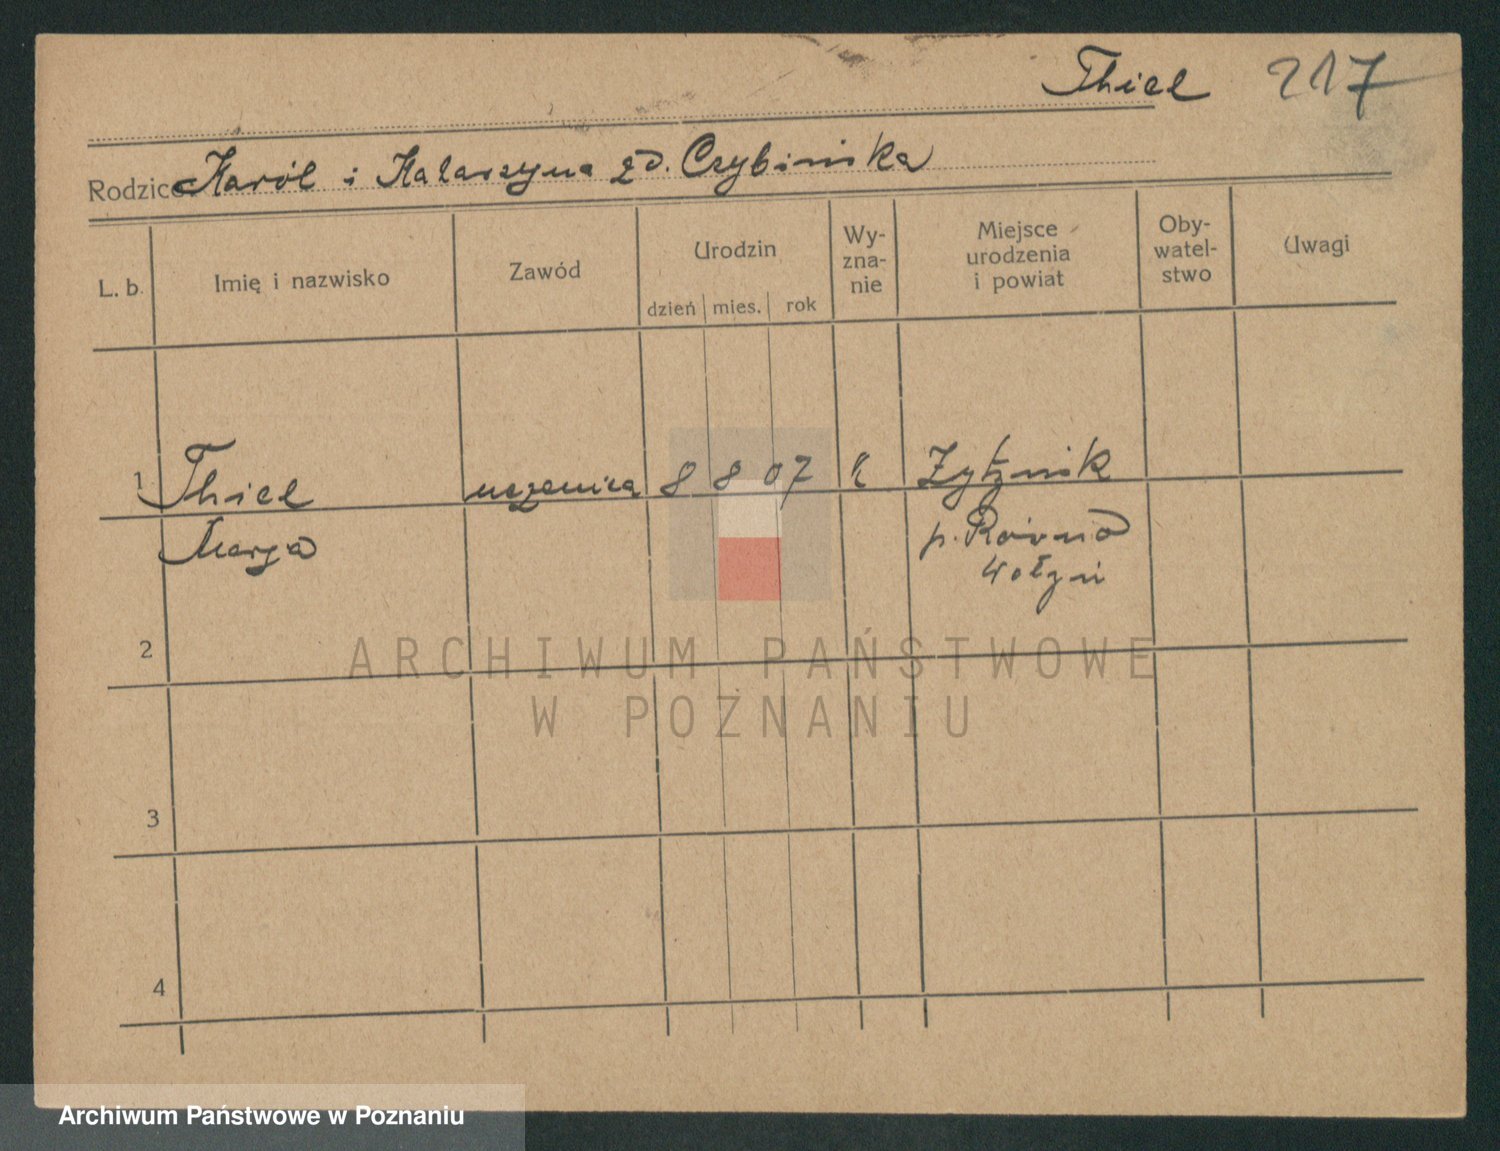 Thiel 217
Rodzice Karól i Katarzyna zd. Czybińska
L. b. Imię i nazwisko Zawód Urodzin Wy- zna- nie Miejsce urodzenia i powiat Oby- watel- stwo Uwagi
dzień mies. rok
1 Thiel uczenica 8 8 07 k Żytynik
Marja p. Równo
Wołyń
2
ARCHIWUM PAŃSTWOWE
W POZNANIU
3
4
Archiwum Państwowe w Poznaniu